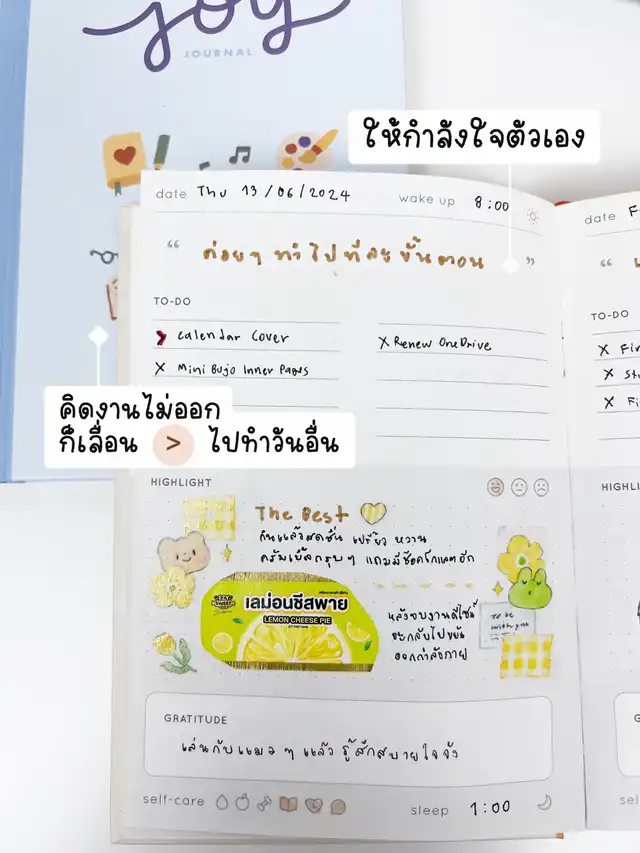 joy
JOURNAL
ให้กำลังใจตัวเอง
date Thu 13/06/2024 wake up 8:00
date F
“ ค่อยๆ ทำไปทีละขั้นตอน ”
“
TO-DO
TO-DO
> Calendar Cover
X Renew OneDrive
X Mini Bujo Inner Pages
X Fir
X Stu
X Fi
คิดงานไม่ออก
ก็เลื่อน > ไปทำวันอื่น
HIGHLIGHT
HIGHLI
The Best
กินแล้วสดชื่น เปรี้ยว หวาน
ครัมเบิ้ลกรุบๆ แถมมีช็อคโกแลตอีก
DAY SWEET
เลม่อนชีสพาย
LEMON CHEESE PIE
หลังจบงานดีไซน์
จะกลับไปขยัน
ออกกำลังกาย
To be
with you
GRATITUDE
G
เล่นกับแมวๆ แล้ว รู้สึกสบายใจจัง
self-care
sleep 1:00
sel